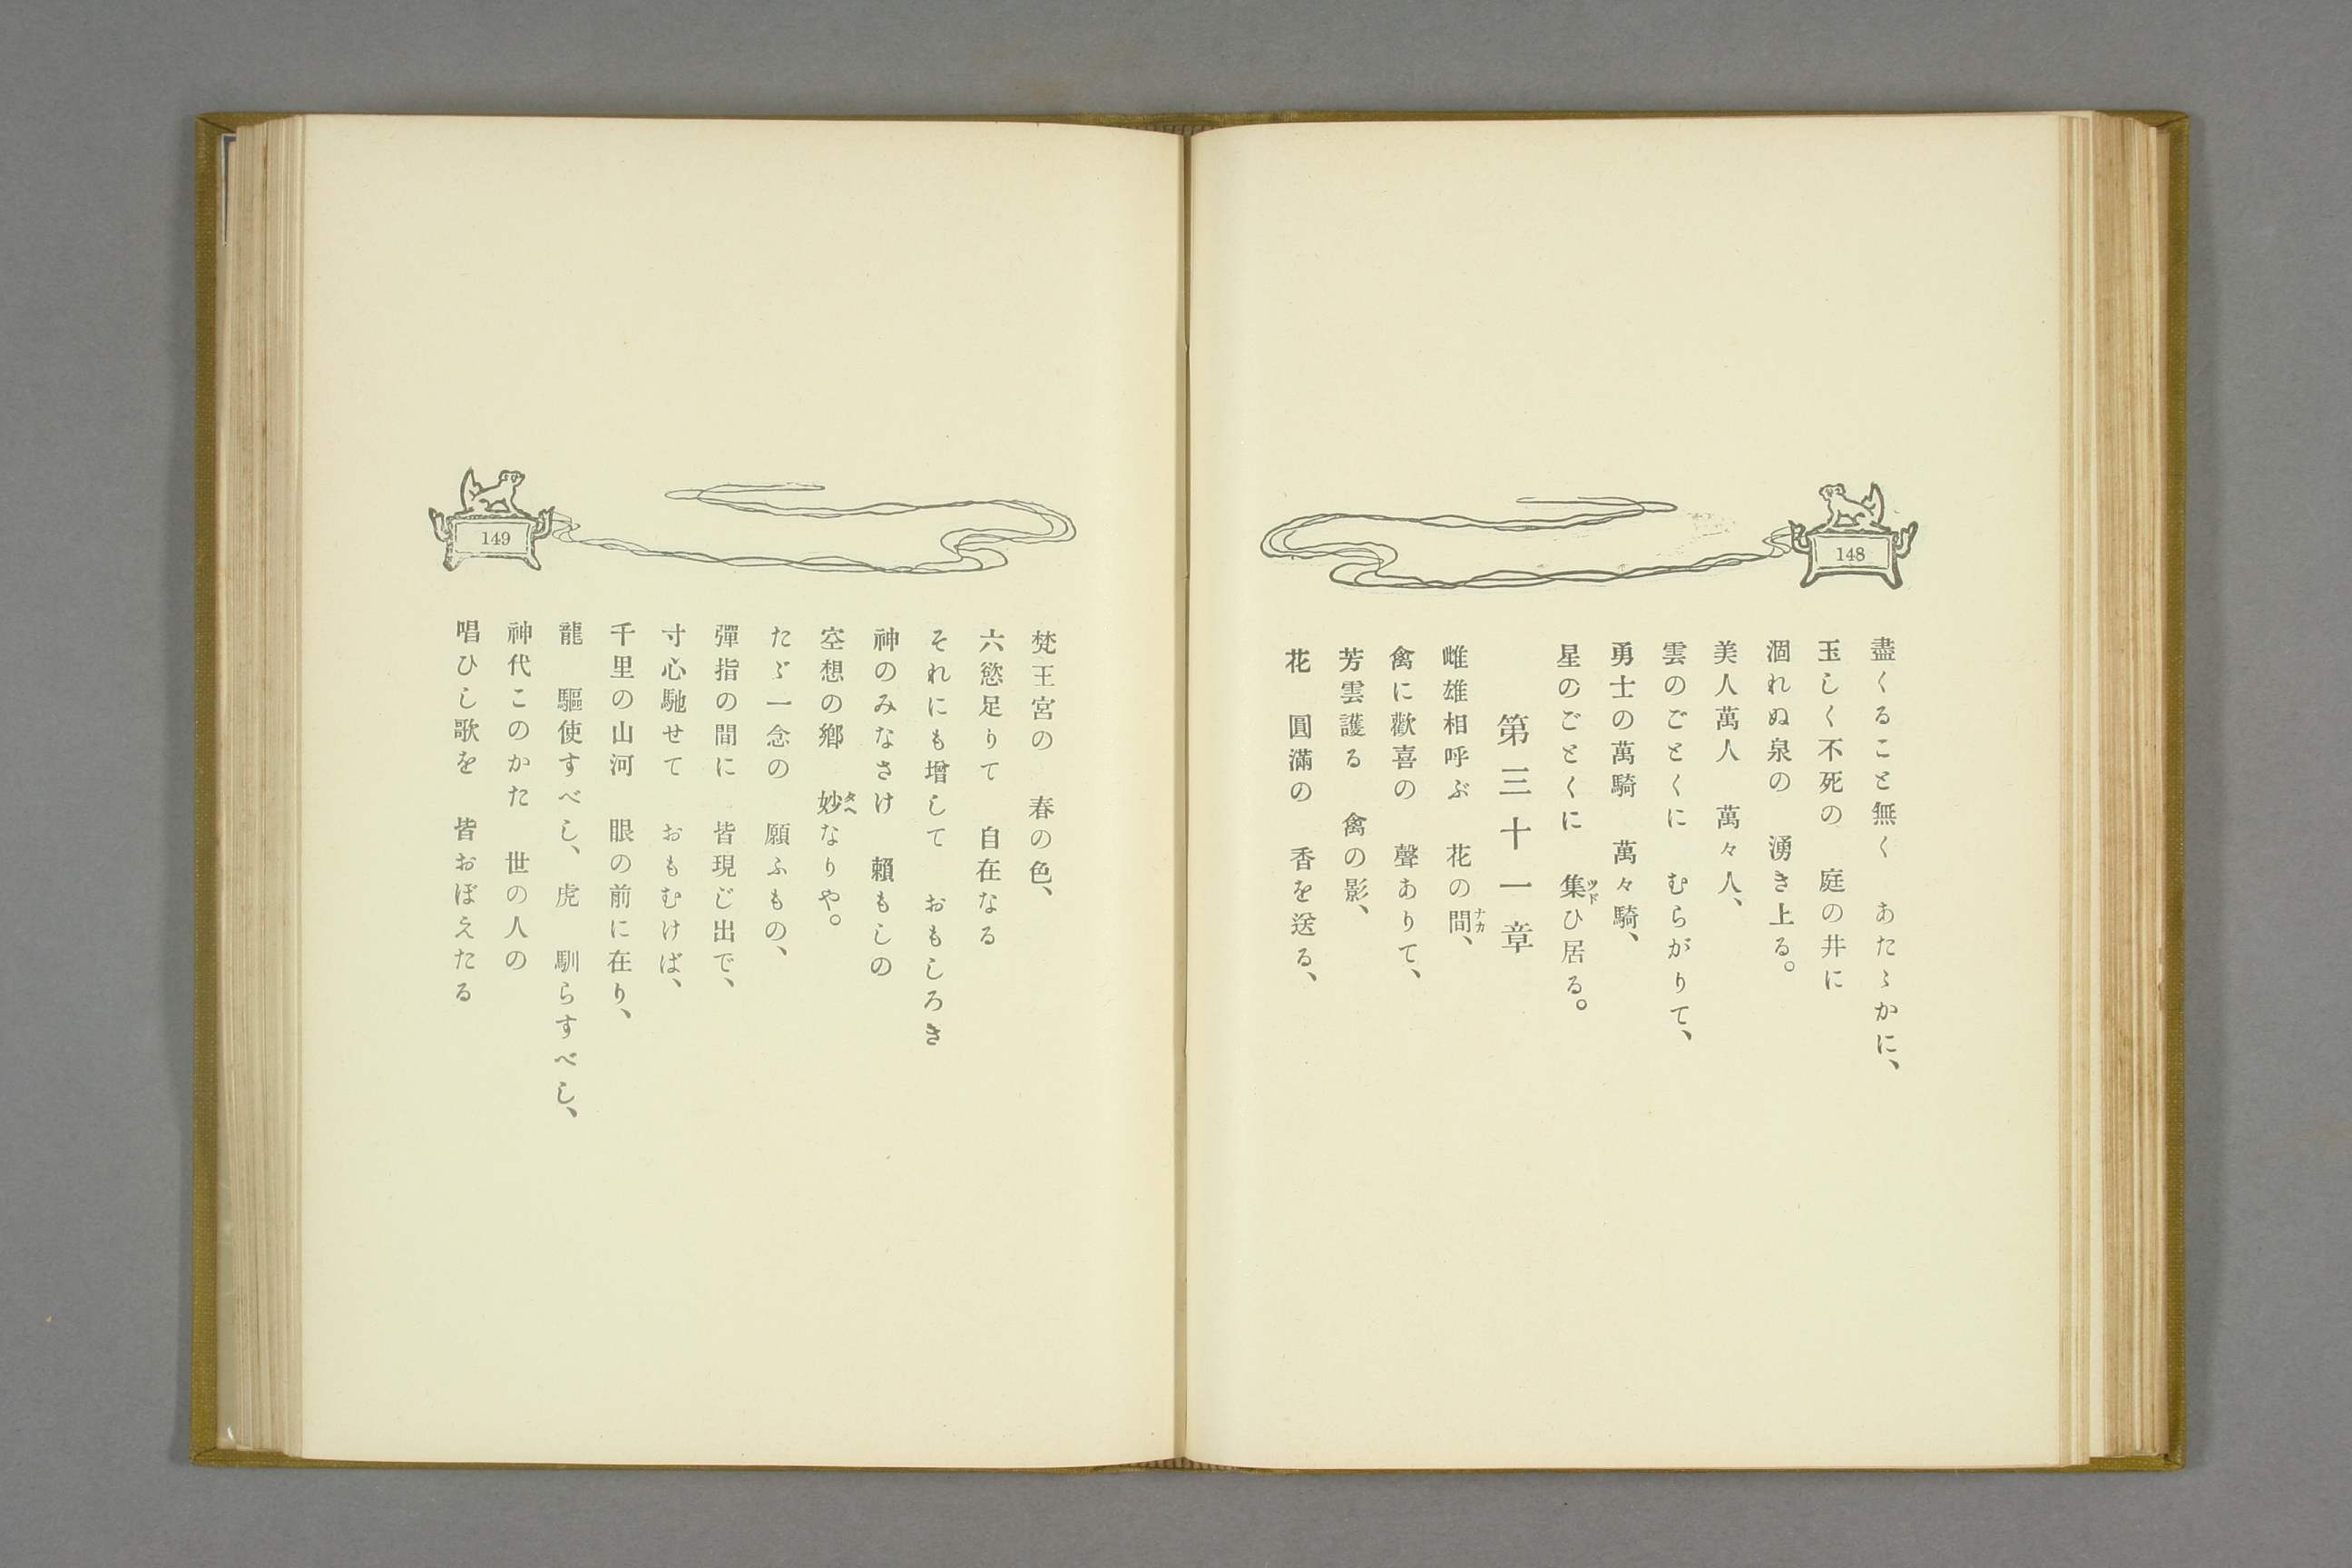 148
盡くること無く　あたゝかに、
玉しく不死の　庭の井に
涸れぬ泉の　湧き上る。
美人萬人　萬々人、
雲のごとくに　むらがりて、
勇士の萬騎　萬々騎、
星のごとくに　集ツドひ居る。
第三十一章
雌雄相呼ぶ　花の間ナカ、
禽に歡喜の　聲ありて、
芳雲護る　禽の影、
花　圓滿の　香を送る、
149
梵王宮の　春の色、
六慾足りて　自在なる
それにも增して　おもしろき
神のみなさけ　賴もしの
空想の鄕　妙タヘなりや。
たゞ一念の　願ふもの、
彈指の間に　皆現じ出で、
寸心馳せて　おもむけば、
千里の山河　眼の前に在り、
龍　驅使すべし、虎　馴らすべし、
神代このかた　世の人の
唱ひし歌を　皆おぼえたる